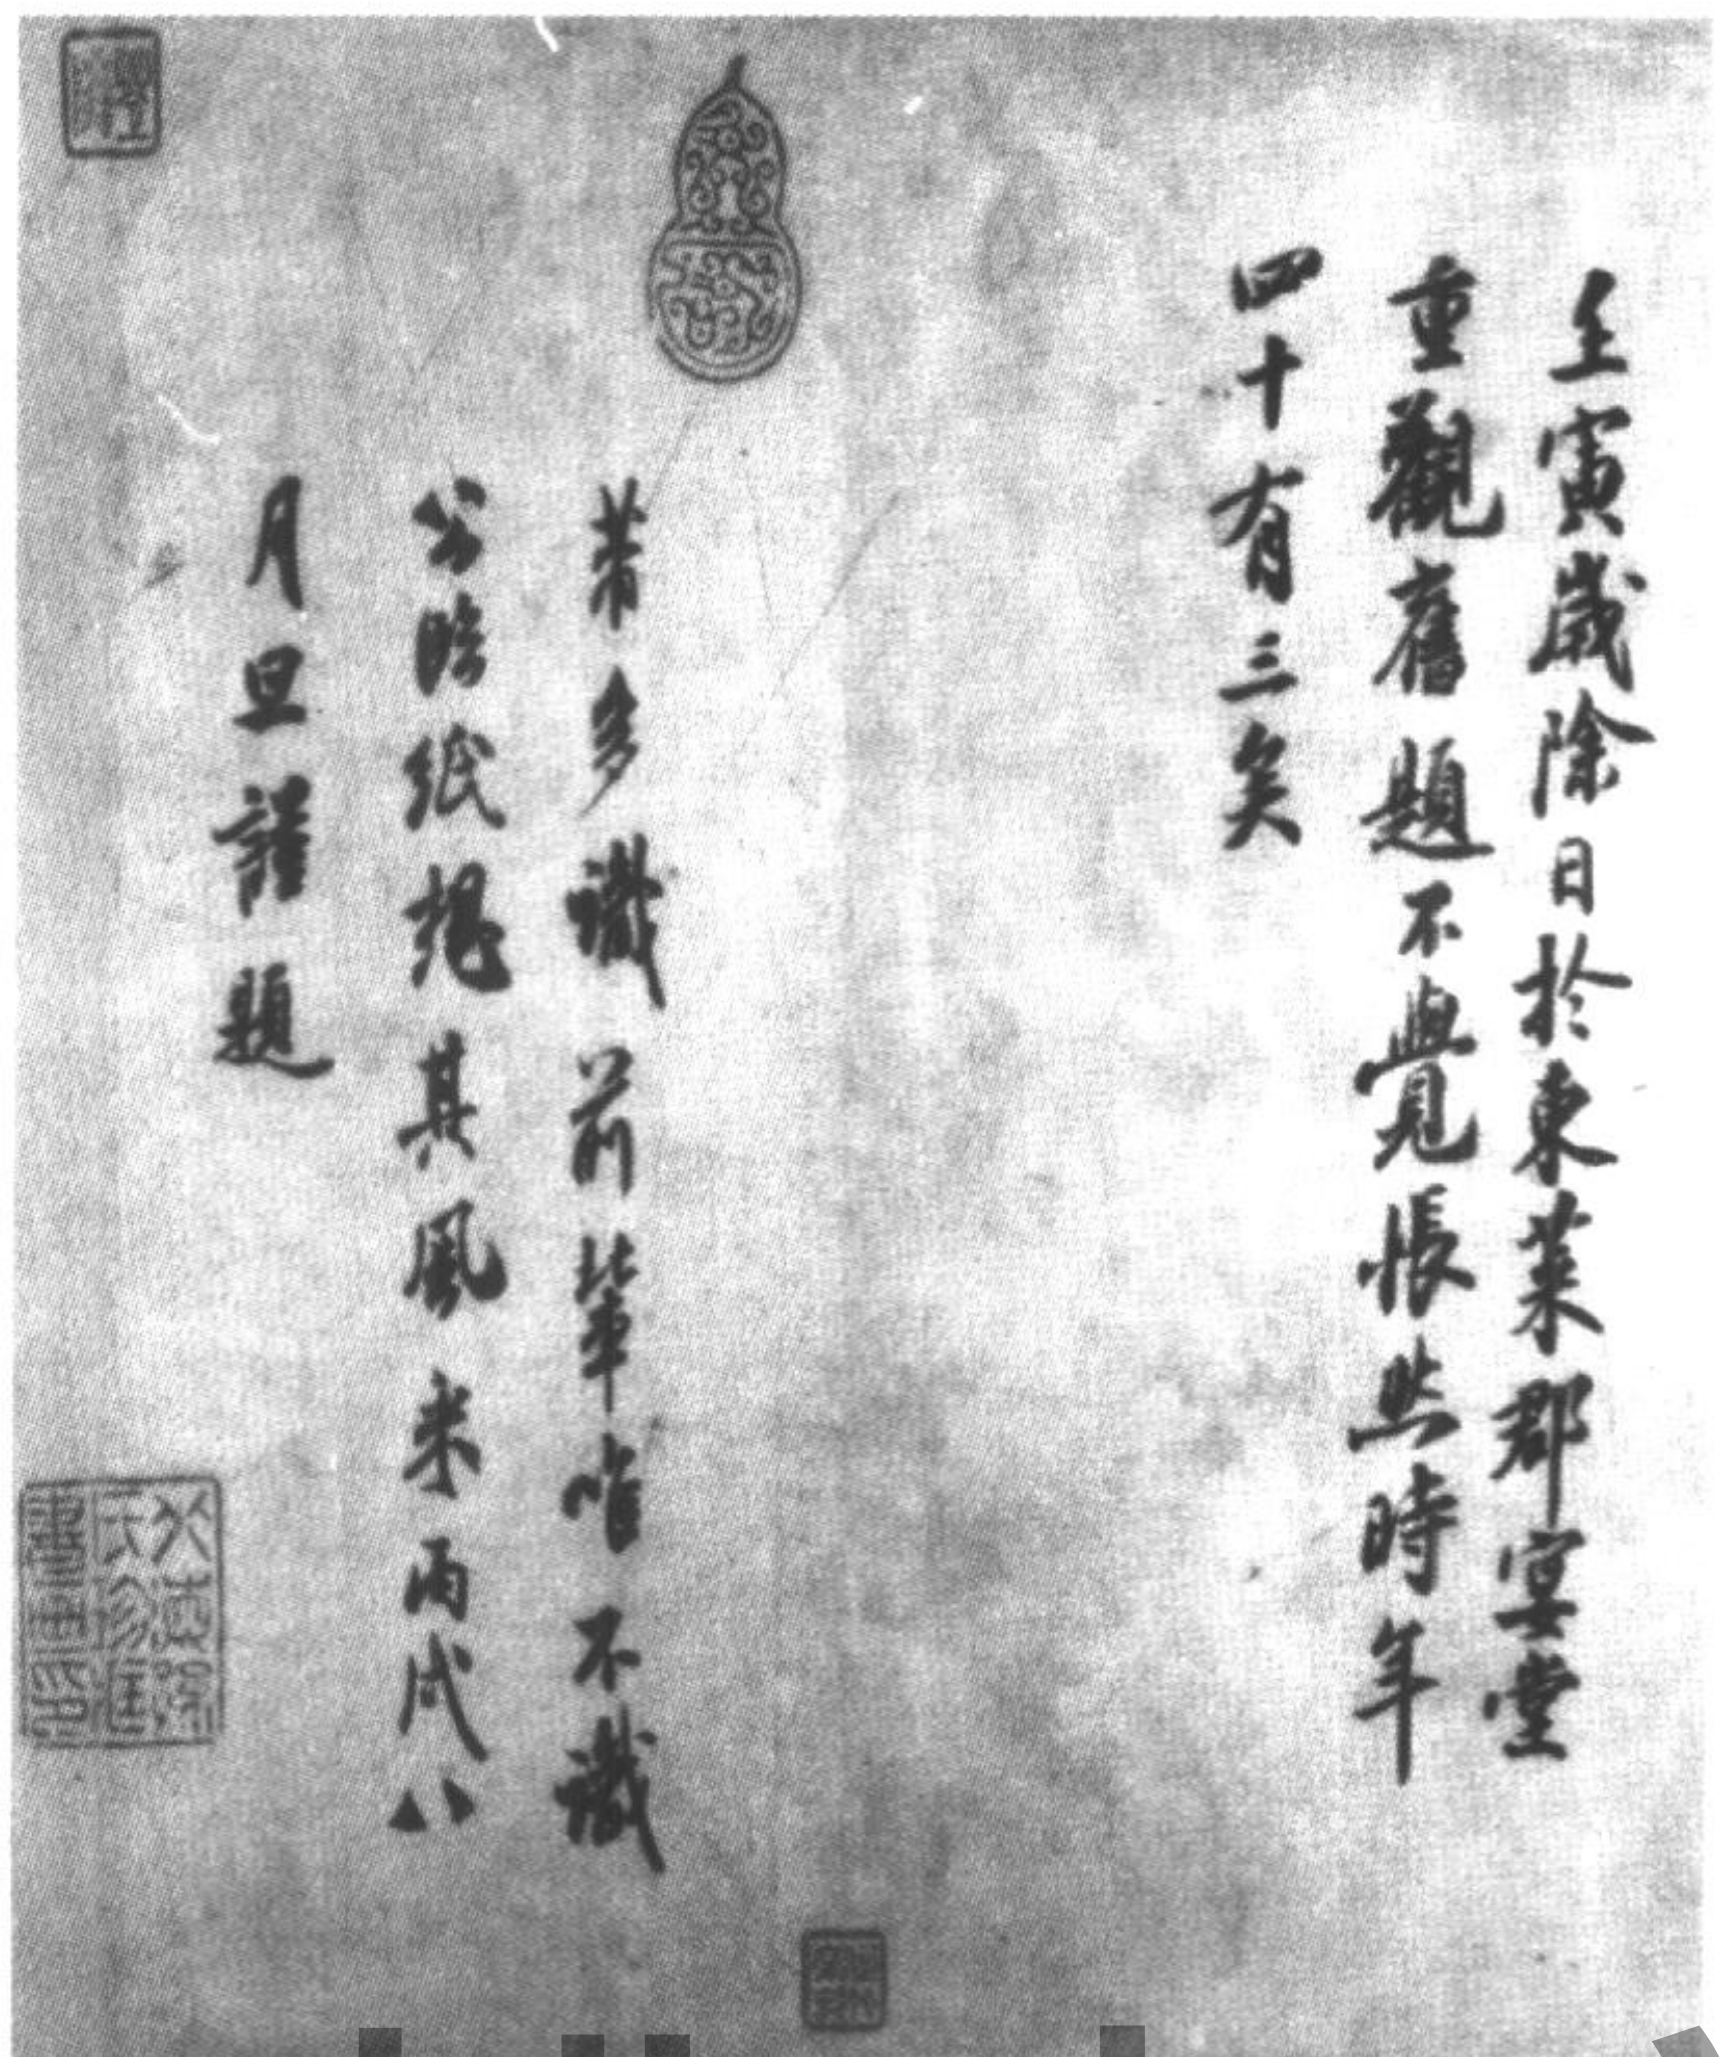 壬寅歲除日於東萊郡宴堂
重觀舊題不覺悵然時年
四十有三矣
芾多識前輩唯不識
公臨紙想其風采丙戌八
月旦謹題